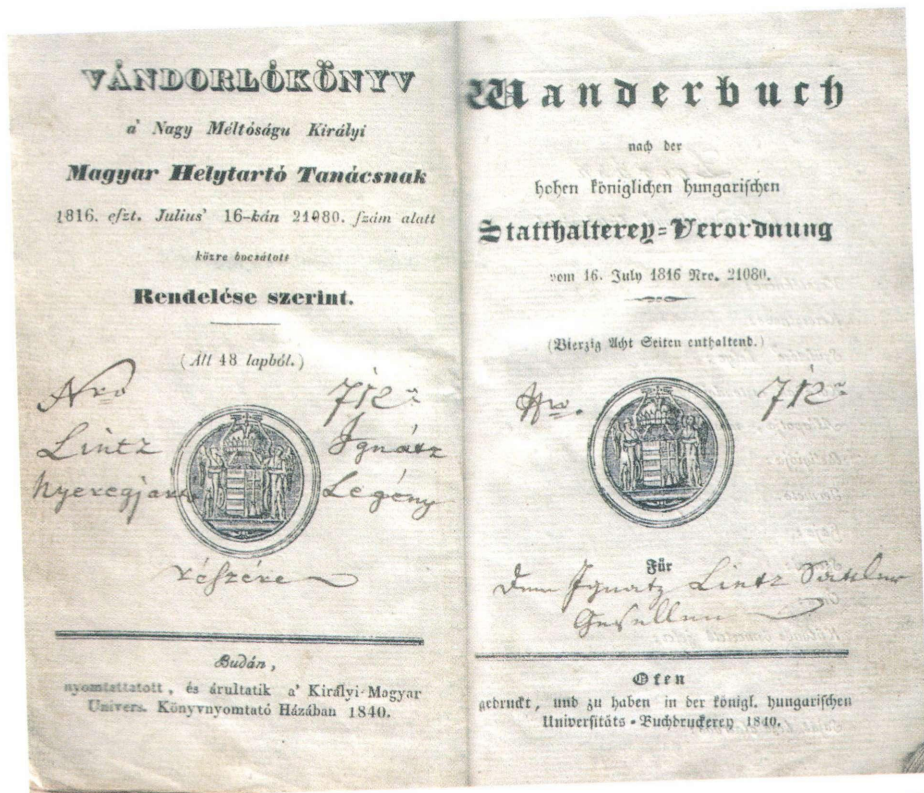 VÁNDORLÓKÖNYV
a' Nagy Méltóságu Királyi
Magyar Helytartó Tanácsnak
1816. eſzt. Julius' 16-kán 21080. ſzám alatt
közre bocsátott
Rendelése szerint.
(Áll 48 lapból.)
Nro 712
Lintz Ignátz
Nyeregjártó Legény
részére
Budán,
nyomtattatott, és árultatik a' Királyi Magyar
Univers. Könyvnyomtató Házában 1840.
Wanderbuch
nach der
hohen königlichen hungariſchen
Statthalterey-Verordnung
vom 16. July 1816 Nro. 21080.
(Vierzig Acht Seiten enthaltend.)
Nro. 712
Für
Dem Ignatz Lintz Sattler
Gesellen
Ofen
gedruckt, und zu haben in der königl. hungariſchen
Univerſitäts-Buchdruckerey 1840.